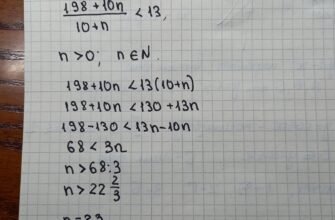 198+10n / 10+n < 13,
n > 0; n ∈ N.
198+10n < 13(10+n)
198+10n < 130+13n
198-130 < 13n-10n
68 < 3n
n > 68:3
n > 22 2/3